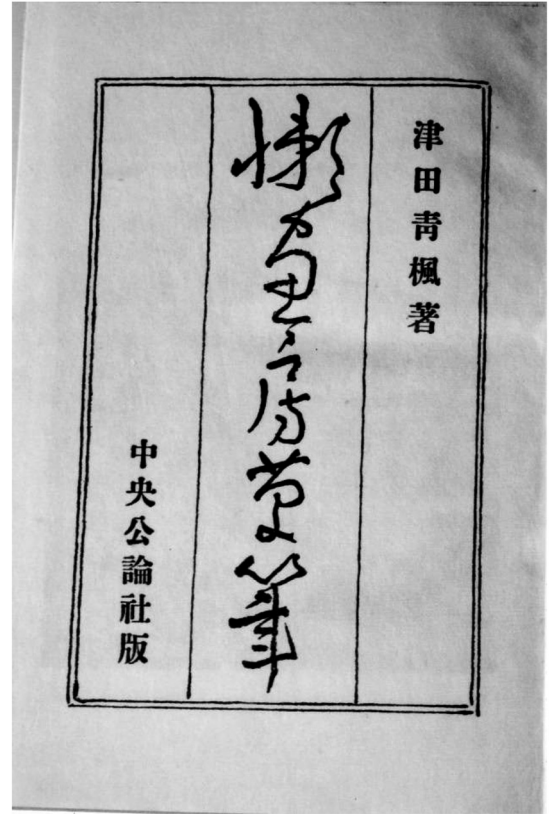 津田青楓著
懶画房草筆
中央公論社版